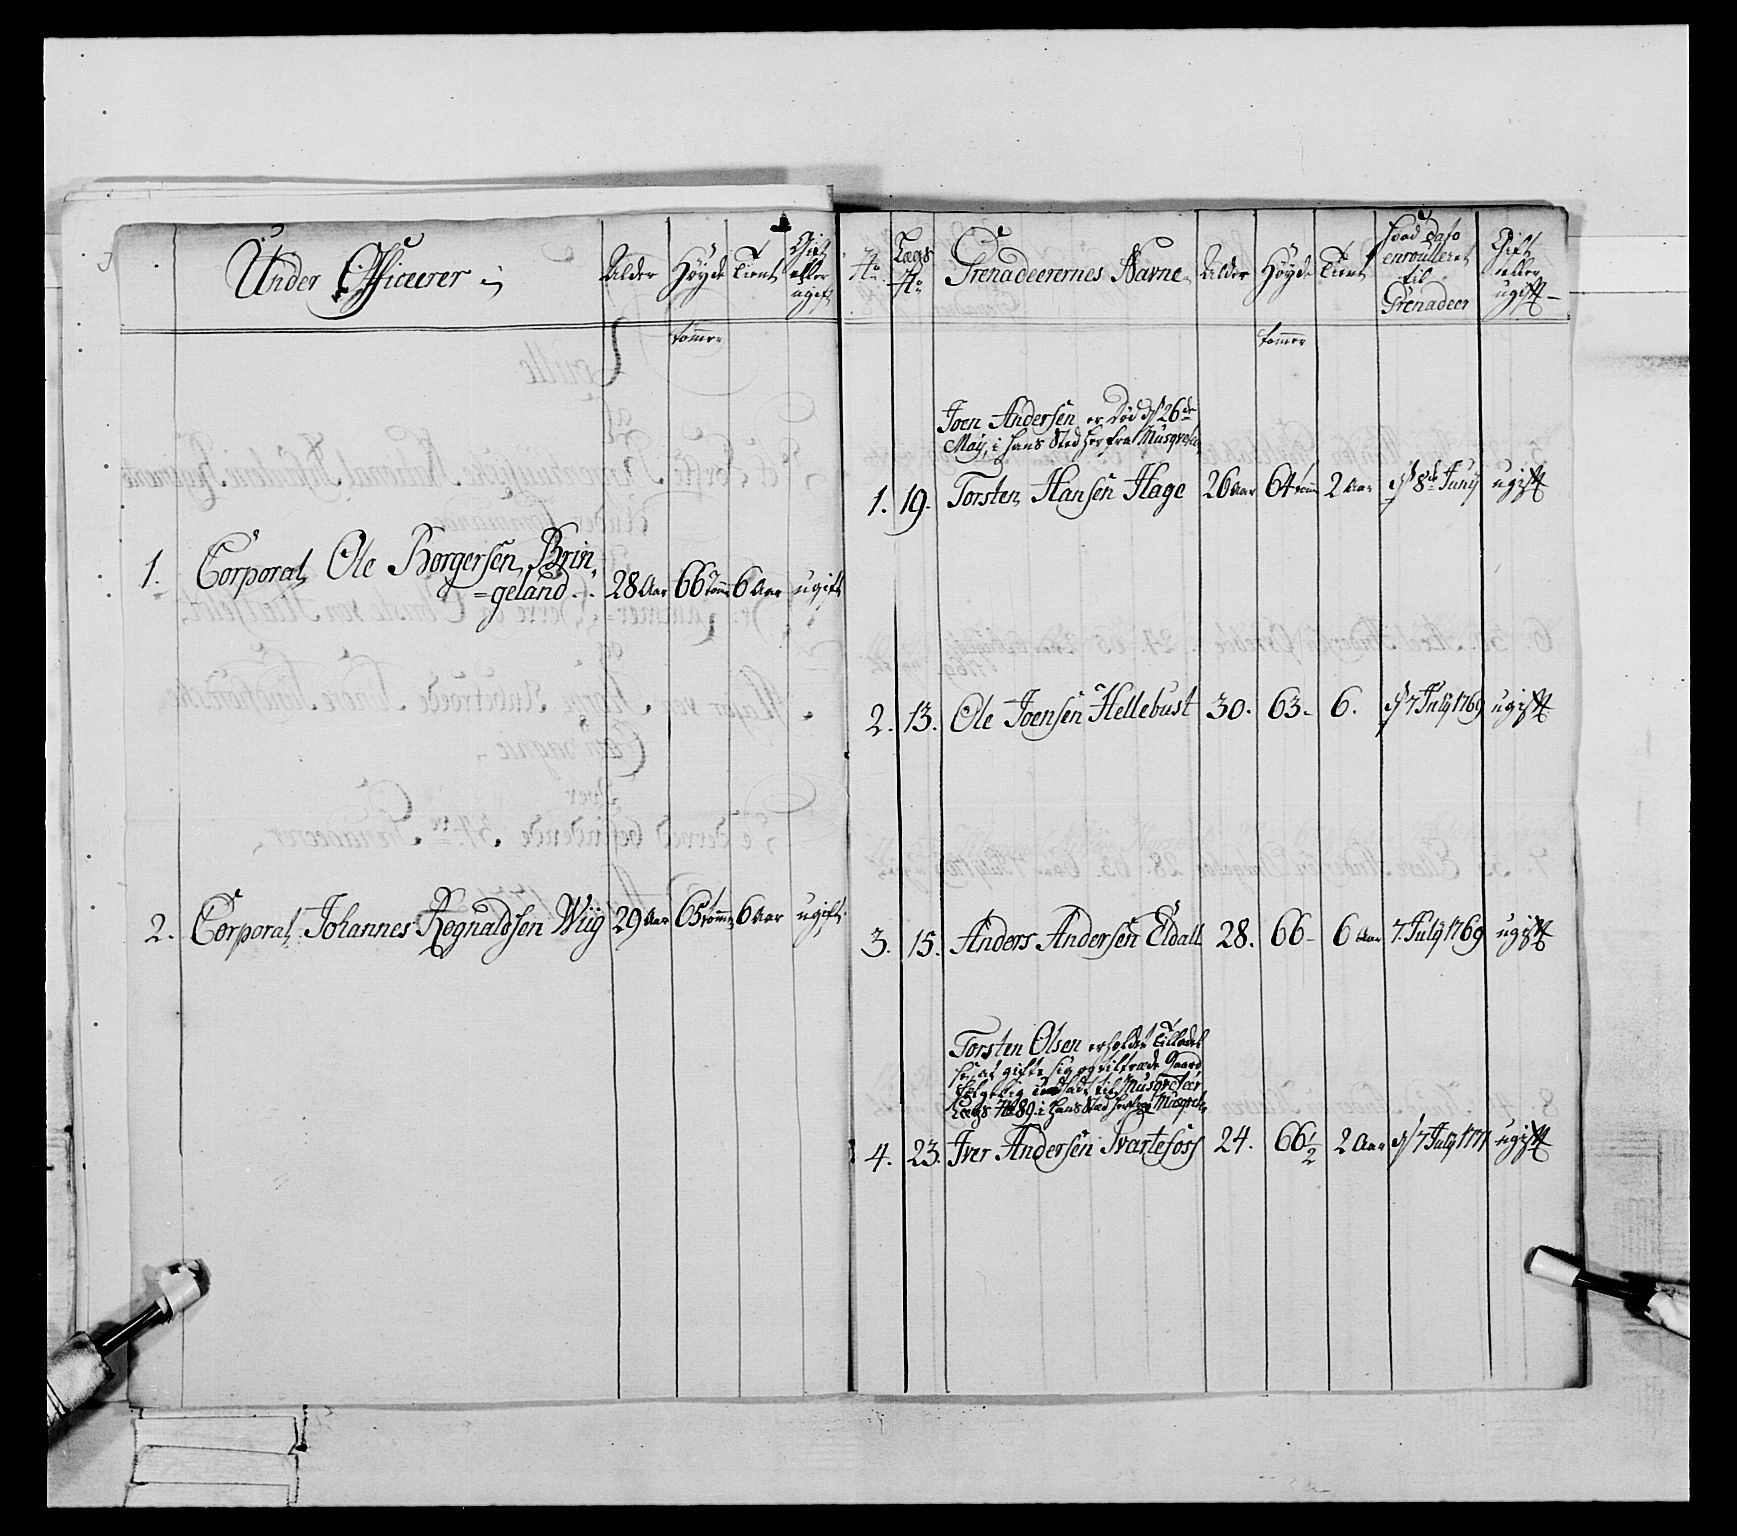 Under Officerer
Alder
Høyde
Tient
Gift
eller
ugift
tommer
1. Corporal, Ole Borgersen Brin,
=geland . . 28 Aar 66 Tom 6 Aar ugift
2. Corporal, Johannes Rognaldsen Wiig 29 Aar 65 tomme 6 Aar ugift
No
Lægs
No
Grenadeerernes Navne
Alder
Høyde
Tient
hvad dato
enroulleret
til
Grenadeer
Gift
eller
ugift
tommer
Joen Andersen er Død d 26de
May, i hans Sted her fra Musqveteer
1. 19. Torsten Hansen Hage 26 Aar 64 tom 2 Aar d 8de Juny ugift
2. 13. Ole Joensen Hellebust 30. 63. 6. d 7 July 1769 ugift
3. 15. Anders Andersen Eldall 28. 66 6 Aar 7. July 1769 ugift
Torsten Olsen erholdet Tilladel
se at gifte sig og tiltræde Gaard
følgelig Musqveteer
Lægs No 89. i hans Sted her fra Musqvet
4. 23. Iver Andersen Svartefoss 24. 66 1/2 2 Aar d 7 July 1771 ugift